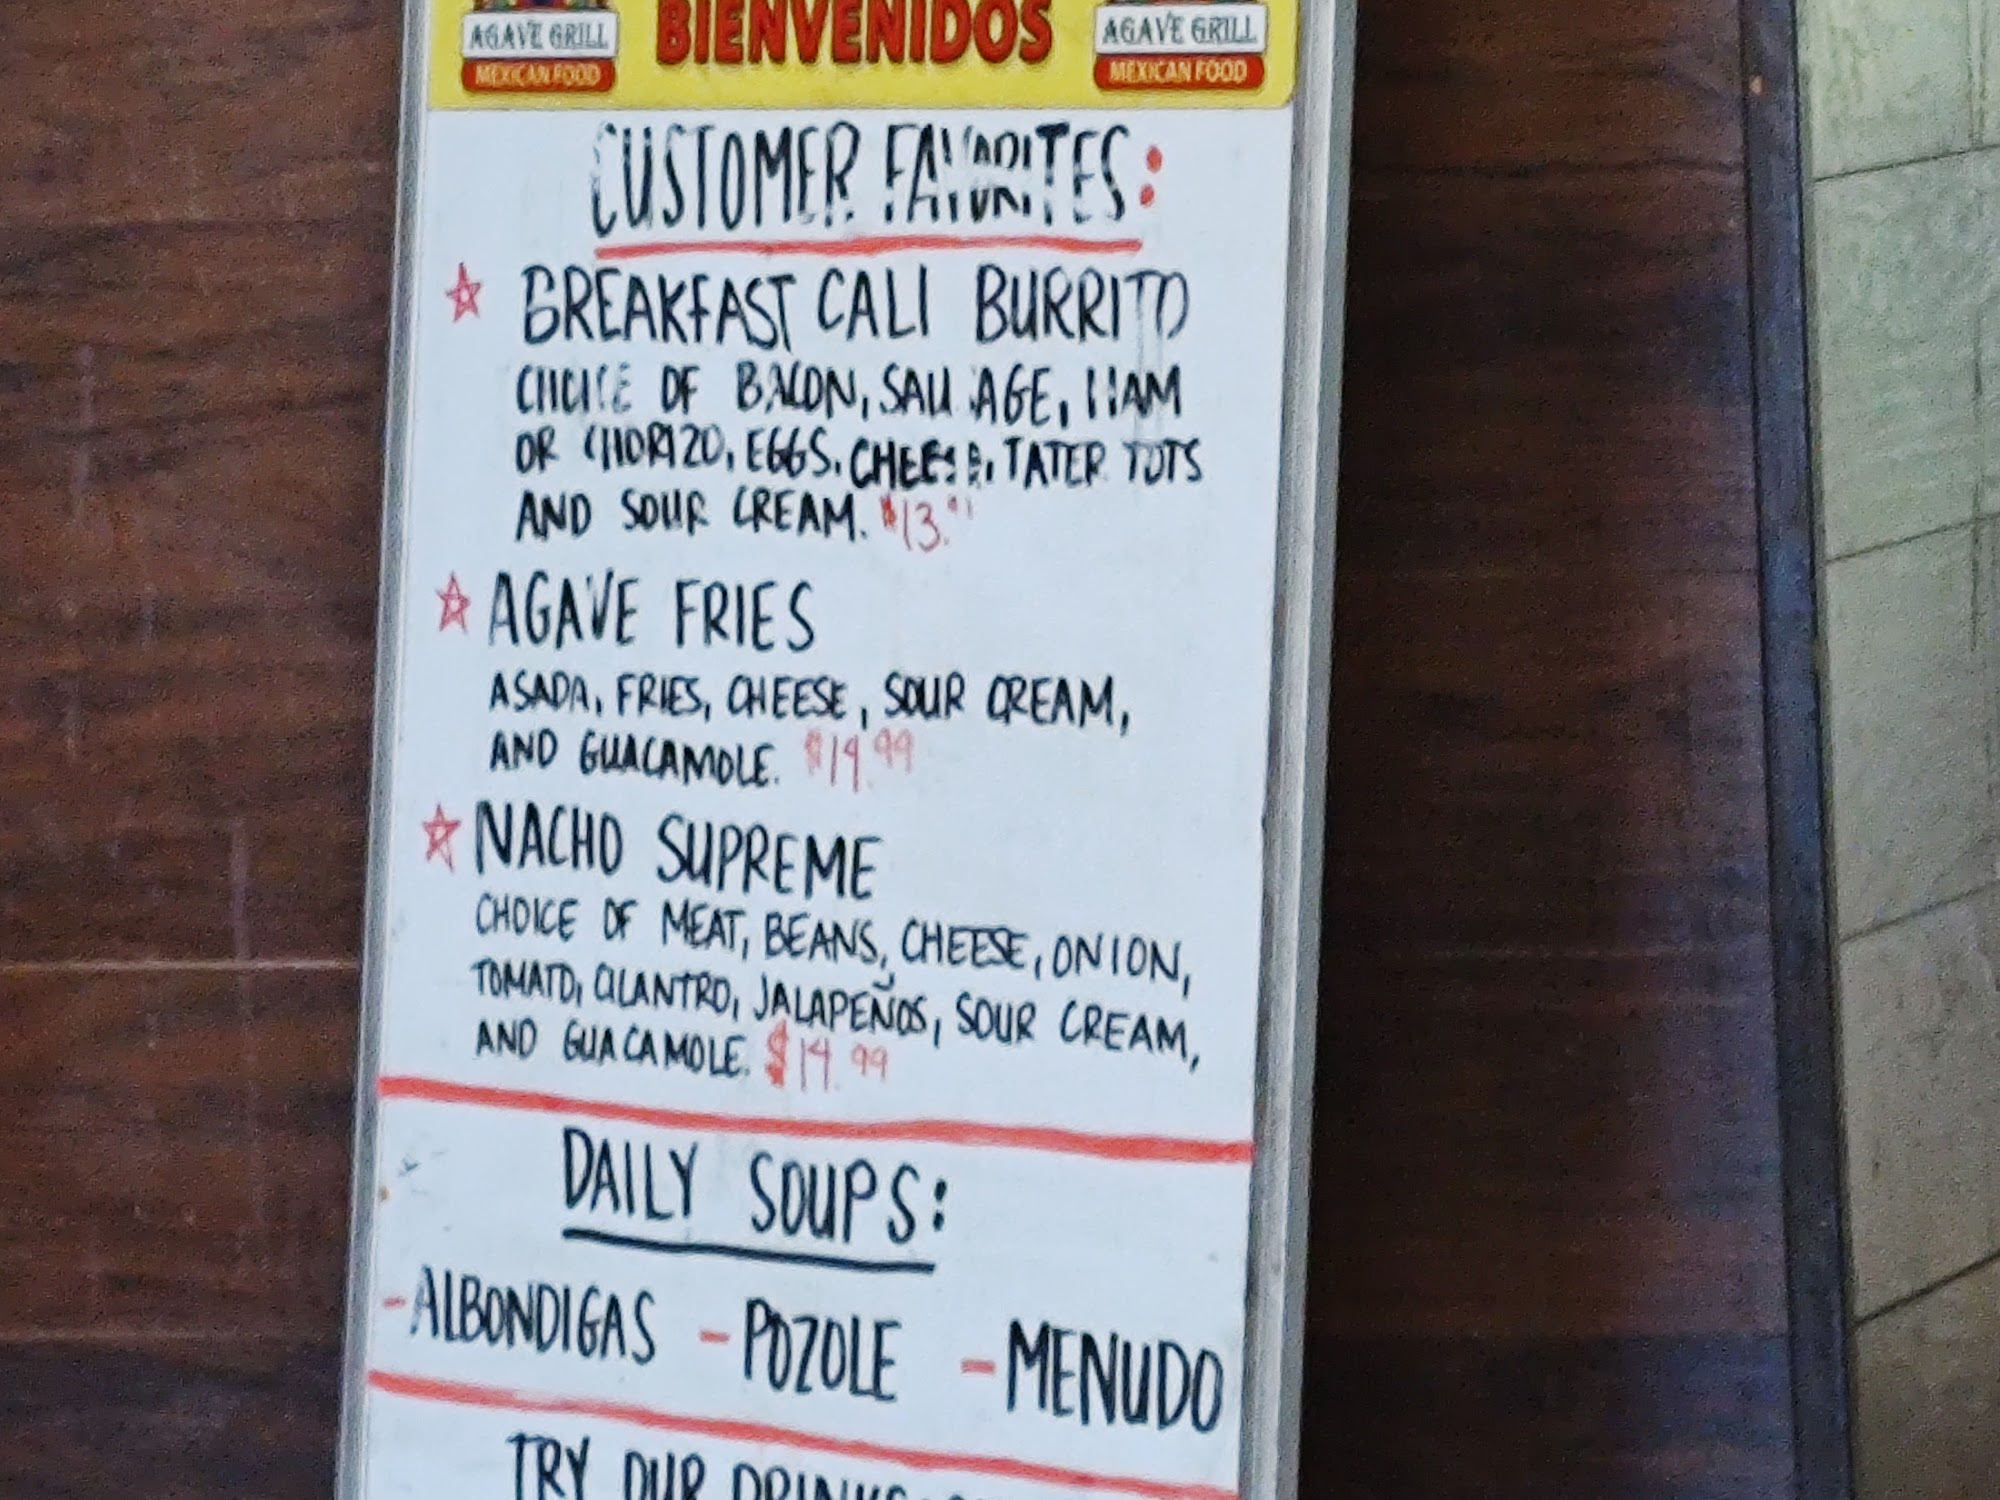 AGAVE GRILL
MEXICAN FOOD
BIENVENIDOS
AGAVE GRILL
MEXICAN FOOD
CUSTOMER FAVORITES:
BREAKFAST CALI BURRITO
CHOICE OF BACON, SAUSAGE, HAM
OR CHORIZO, EGGS, CHEESE, TATER TOTS
AND SOUR CREAM. $13.
AGAVE FRIES
ASADA, FRIES, CHEESE, SOUR CREAM,
AND GUACAMOLE. $14.99
NACHO SUPREME
CHOICE OF MEAT, BEANS, CHEESE, ONION,
TOMATO, CILANTRO, JALAPEÑOS, SOUR CREAM,
AND GUACAMOLE. $14.99
DAILY SOUPS:
-ALBONDIGAS -POZOLE -MENUDO
TRY OUR DRINKS